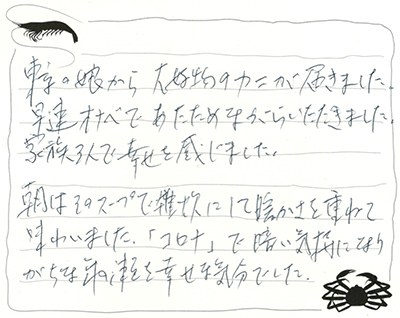 東京の娘から大好物のカニが届きました.
早速オナベであたためながらいただきました.
家族3人で幸せを感じました.
朝はそのスープで雑炊にして暖かさを重ねて
味わいました.「コロナ」で暗い気持になり
がちな年の を幸せな気分でした.